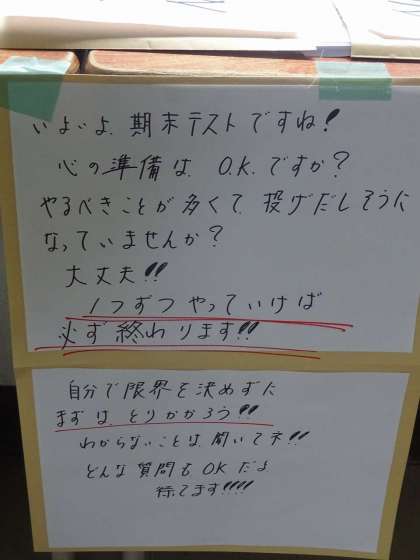 いよいよ、期末テストですね!
心の準備は、O.K.ですか?
やるべきことが多くて、投げだしそうに
なっていませんか?
大丈夫!!
1つずつやっていけば
必ず終わります!!
自分で限界を決めずに
まずは、とりかかろう!!
わからないことは、聞いてネ!!
どんな質問もOKだよ
待てます!!!!